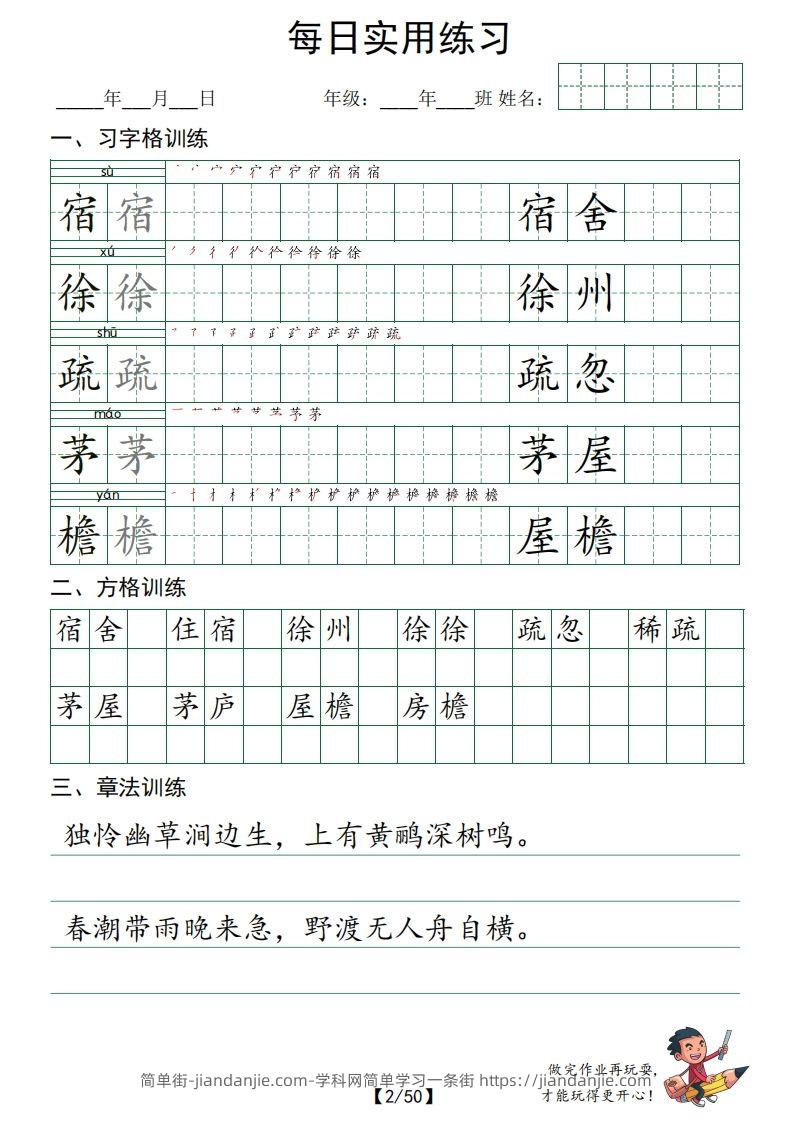 每日实用练习
_____年___月___日 年级：____年____班 姓名：
一、习字格训练
sù
宿 宿 宿 舍
xú
徐 徐 徐 州
shū
疏 疏 疏 忽
máo
茅 茅 茅 屋
yán
檐 檐 屋 檐
二、方格训练
宿 舍 住 宿 徐 州 徐 徐 疏 忽 稀 疏
茅 屋 茅 庐 屋 檐 房 檐
三、章法训练
独怜幽草涧边生，上有黄鹂深树鸣。
春潮带雨晚来急，野渡无人舟自横。
做完作业再玩耍，
简单街-jiandanjie.com-学科网简单学习一条街 https://jiandanjie.com
才能玩得更开心！
【2/50】